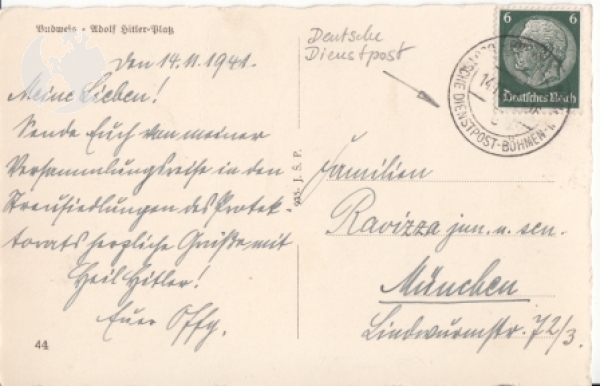 Budweis - Adolf Hitler-Platz
den 14.11.1941.
Meine Lieben!
Sende Euch von meiner
Versammlungsreise in den
Streusiedlungen des Protek-
torats herzliche Grüße mit
Heil Hitler!
Euer
44
935. J. S. P.
Deutsche
Dienstpost
6 6
Deutsches Reich
DEUTSCHE DIENSTPOST-BÖHMEN-
Familien
Ravizza jun. u. sen.
München
Lindwurmstr. 72/3.